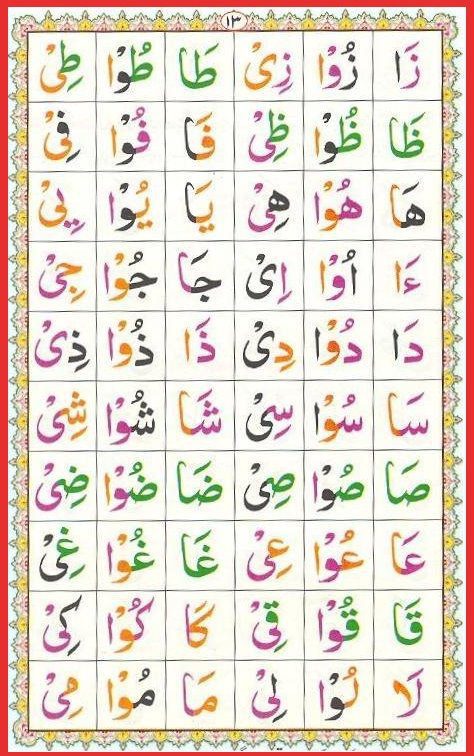 ١٣
زَا زُوْا زِىْ طَا طُوْا طِىْ
ظَا ظُوْا ظِىْ فَا فُوْا فِىْ
هَا هُوْا هِىْ يَا يُوْا يِىْ
ءَا اُوْا اِىْ جَا جُوْا جِىْ
دَا دُوْا دِىْ ذَا ذُوْا ذِىْ
سَا سُوْا سِىْ شَا شُوْا شِىْ
صَا صُوْا صِىْ ضَا ضُوْا ضِىْ
عَا عُوْا عِىْ غَا غُوْا غِىْ
قَا قُوْا قِىْ كَا كُوْا كِىْ
لَا لُوْا لِىْ مَا مُوْا مِىْ